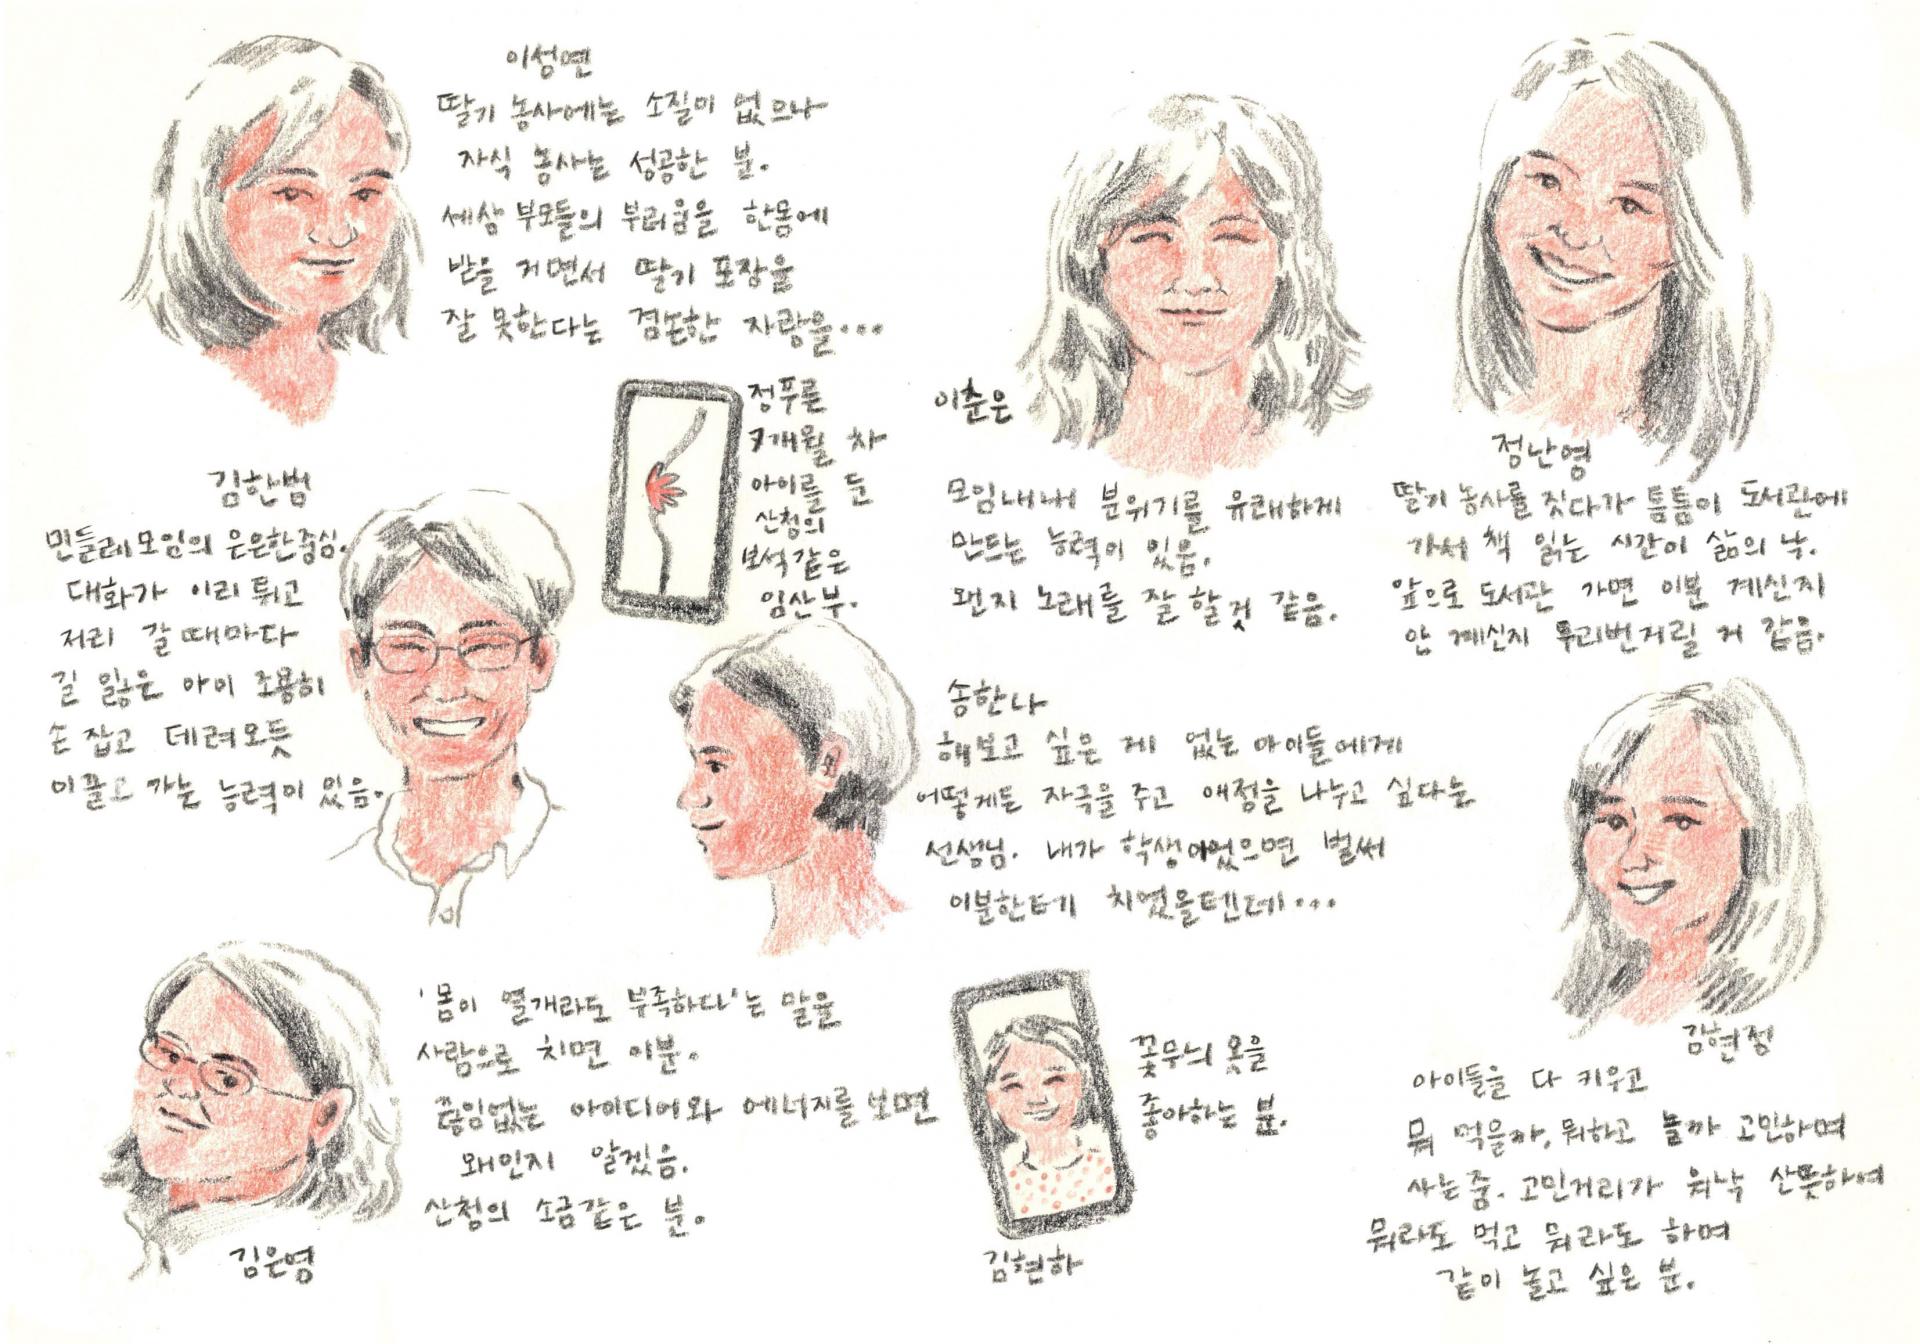 이성면
딸기 농사에는 소질이 없으나
자식 농사는 성공한 분.
세상 부모들의 부러움을 한몸에
받을 거면서 딸기 포장을
잘 못한다는 겸손한 자랑을...
정푸름
7개월 차
아이를 둔
산청의
보석같은
임산부.
김한범
민들레 모임의 은은한 중심.
대화가 이리 튀고
저리 갈 때마다
길 잃은 아이 조용히
손 잡고 데려오듯
이끌고 가는 능력이 있음.
이춘은
모임내내 분위기를 유쾌하게
만드는 능력이 있음.
왠지 노래를 잘 할 것 같음.
정난영
딸기 농사를 짓다가 틈틈이 도서관에
가서 책 읽는 시간이 삶의 낙.
앞으로 도서관 가면 이분 계신지
안 계신지 두리번거릴 거 같음.
송한나
해보고 싶은 게 없는 아이들에게
어떻게든 자극을 주고 애정을 나누고 싶다는
선생님. 내가 학생이었으면 벌써
이분한테 치였을텐데...
김은영
'몸이 열개라도 부족하다'는 말을
사람으로 치면 이분.
끊임없는 아이디어와 에너지를 보면
왜인지 알겠음.
산청의 소금같은 분.
김현하
꽃무늬 옷을
좋아하는 분.
김현정
아이들을 다 키우고
뭐 먹을까, 뭐하고 놀까 고민하며
사는 중. 고민거리가 워낙 산뜻하여
뭐라도 먹고 뭐라도 하며
같이 놀고 싶은 분.